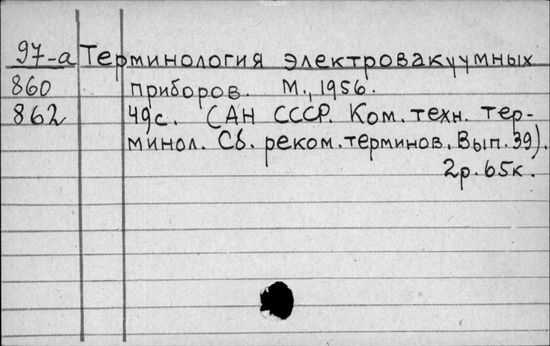 97-а Терминология электровакуумных
860 приборов. М., 1956.
862 49с. (АН СССР. Ком. техн. тер-
минол. Сб. реком. терминов. Вып. 39).
2р. 65к.